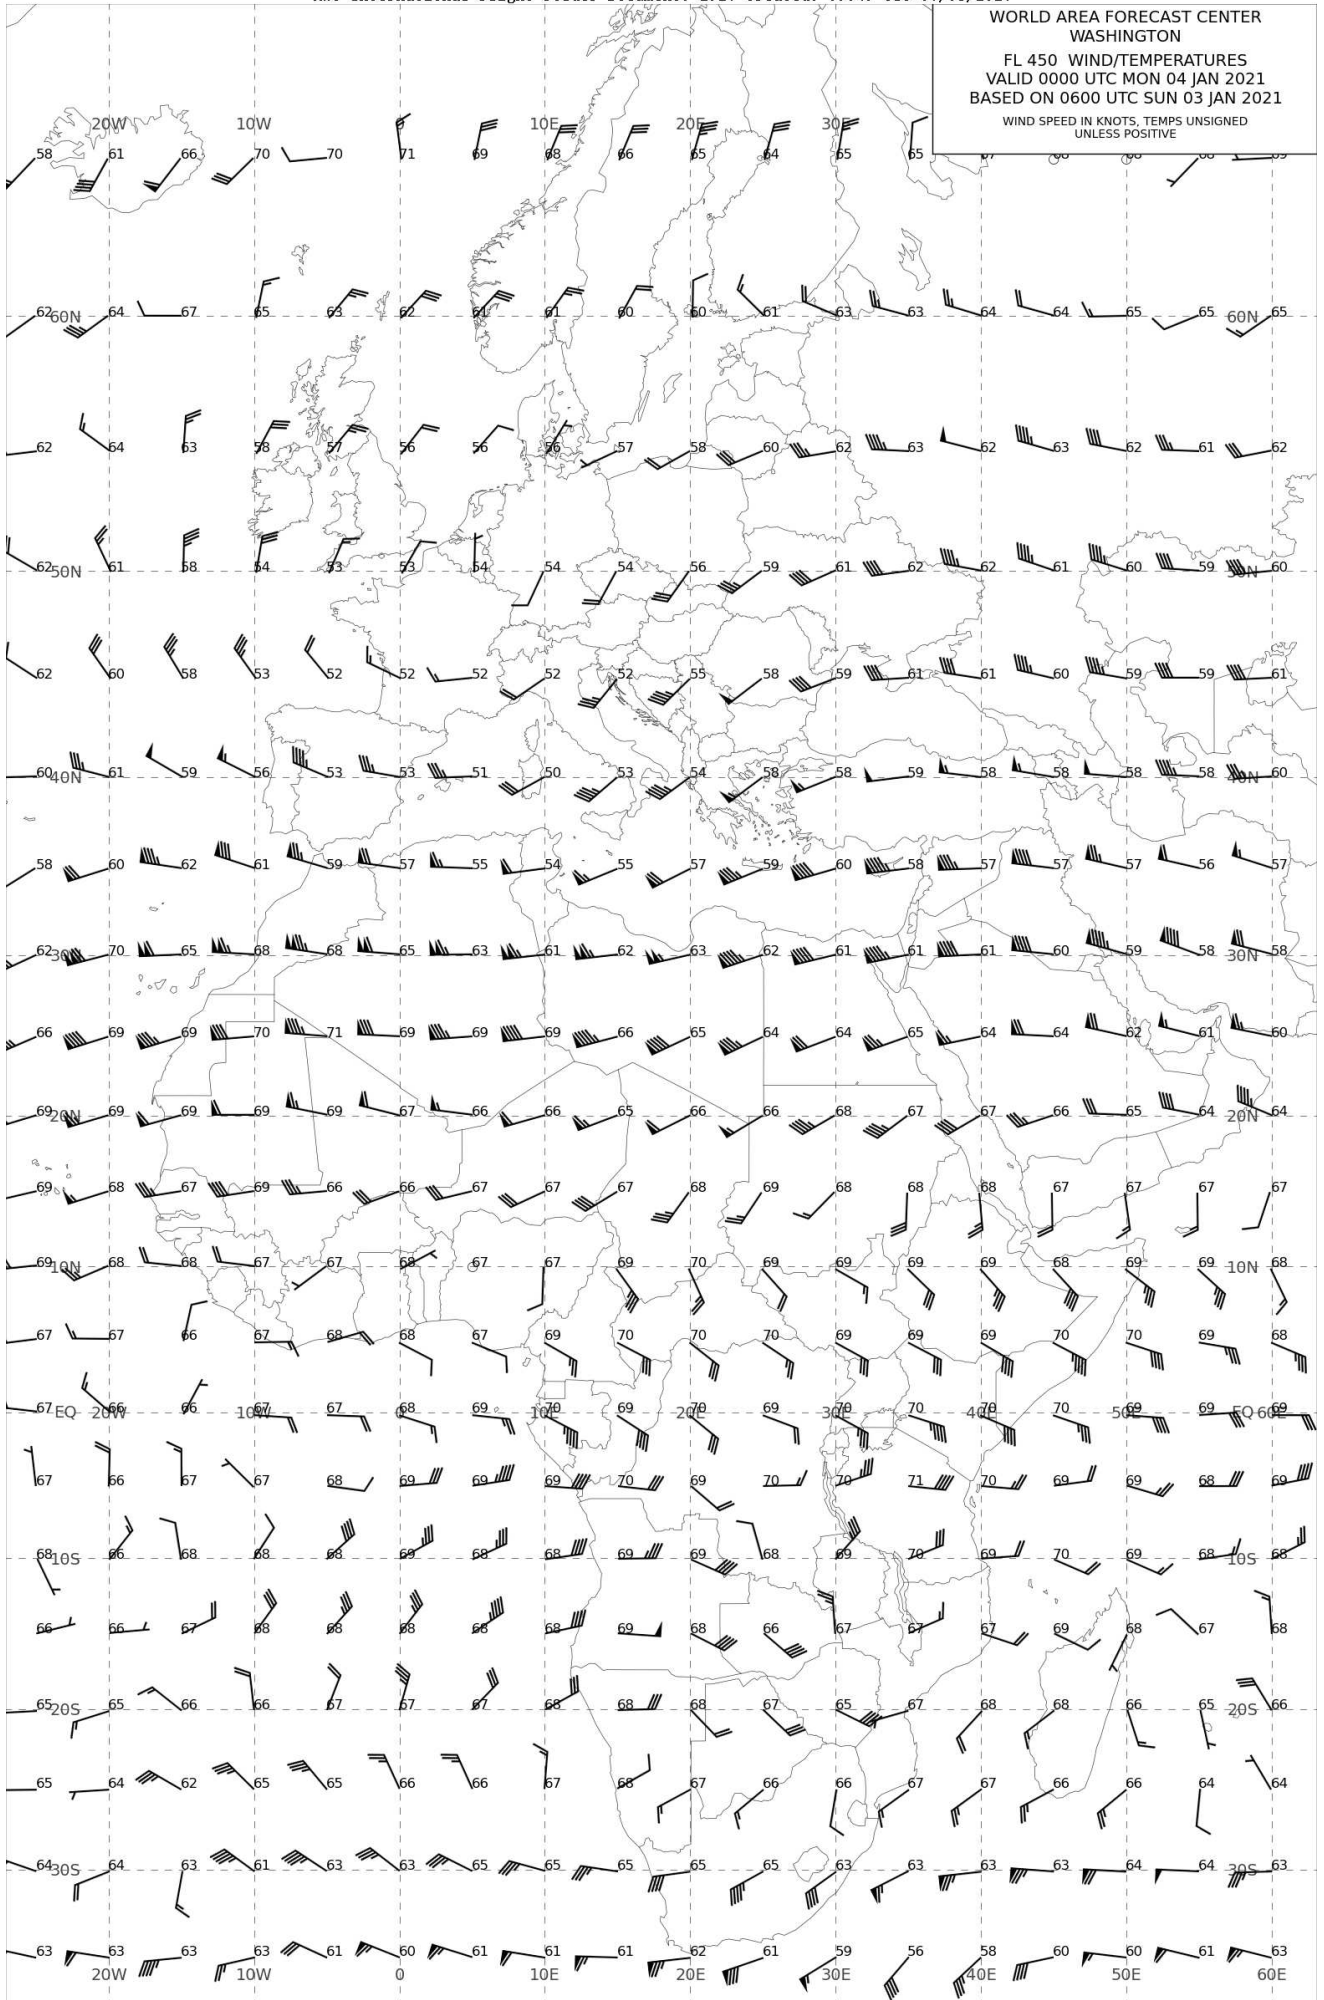 WORLD AREA FORECAST CENTER
WASHINGTON
FL 450 WIND/TEMPERATURES
VALID 0000 UTC MON 04 JAN 2021
BASED ON 0600 UTC SUN 03 JAN 2021
WIND SPEED IN KNOTS, TEMPS UNSIGNED
UNLESS POSITIVE
20W 10W 0 10E 20E 30E
58 61 66 70 70 71 69 68 66 65 64 65 65
62 60N 64 67 65 63 62 61 61 60 60 61 63 63 64 64 65 65 60N 65
62 64 63 58 57 56 56 56 57 58 60 62 63 62 63 62 61 62
62 50N 61 58 54 53 53 54 54 54 56 59 61 62 62 61 60 59 50N 60
62 60 58 53 52 52 52 52 52 55 58 59 61 61 60 59 59 61
60 40N 61 59 56 53 53 51 50 53 54 58 58 59 58 58 58 58 40N 60
58 60 62 61 59 57 55 54 55 57 59 60 58 57 57 57 56 57
62 30N 70 65 68 68 65 63 61 62 63 62 61 61 61 60 59 58 30N 58
66 69 69 70 71 69 69 69 66 65 64 64 65 64 64 62 61 60
69 20N 69 69 69 69 67 66 66 65 66 66 68 67 67 66 65 64 20N 64
69 68 67 69 66 66 67 67 67 68 69 68 68 68 67 67 67 67
69 10N 68 68 67 67 68 67 67 69 70 69 69 69 69 68 69 69 10N 68
67 67 66 67 68 68 67 69 70 70 70 69 69 69 70 70 69 68
67 EQ 20W 66 66 10W 67 67 0 68 69 10E 70 69 20E 70 69 30E 70 70 40E 70 70 50E 69 69 EQ 60E 69
67 66 67 67 68 69 69 69 70 69 70 70 71 70 69 69 68 69
68 10S 66 68 68 68 69 68 68 69 69 68 69 70 69 70 69 68 10S 68
66 66 67 68 68 68 68 68 69 68 66 67 67 67 69 68 67 68
65 20S 65 66 66 67 67 67 68 68 68 67 65 67 68 68 66 65 20S 66
65 64 62 65 65 66 66 67 68 67 66 66 67 67 66 66 64 64
64 30S 64 63 61 63 63 65 65 65 65 65 63 63 63 63 64 64 30S 63
63 63 63 63 61 60 61 61 61 62 61 59 56 58 60 60 61 63
20W 10W 0 10E 20E 30E 40E 50E 60E